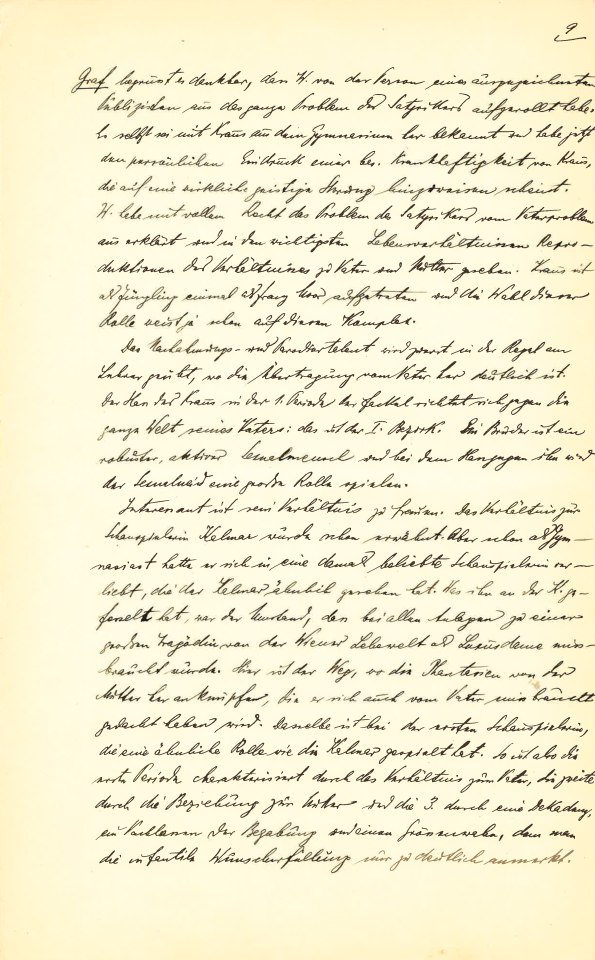 9
Graf begrüsst es dankbar, dass W. von der Person eines ausgezeichneten
Publizisten aus das ganze Problem des Satyrikers aufgerollt habe.
Er selbst sei mit Kraus aus dem Gymnasium her bekannt und habe jetzt
den persönlichen Eindruck einer bes. Krankhaftigkeit von Kraus,
die auf eine wirkliche geistige Störung hinzuweisen scheint.
W. habe mit vollem Recht das Problem des Satyrikers vom Vaterproblem
aus erklärt und in den wichtigsten Lebensverhältnissen Repro-
duktionen des Verhältnisses zu Vater und Mutter gesehen. Kraus ist
als Jüngling einmal als Franz Moor aufgetreten und die Wahl dieser
Rolle weist ja schon auf diesen Komplex.
Das Nachahmungs- und Parodiertalent wird zuerst in der Regel am
Lehrer geübt, wo die Übertragung vom Vater her deutlich ist.
Der Hass des Kraus in der 1. Periode der Fackel richtet sich gegen die
ganze Welt seines Vaters: das ist der I. Bezirk. Ein Bruder ist ein
robuster, aktiver Sexualmensch und bei dem Hass gegen ihn wird
der Sexualneid eine grosse Rolle spielen.
Interessant ist sein Verhältnis zu Frauen. Das Verhältnis zur
Schauspielerin Kalmar wurde schon erwähnt. Aber schon als Gym-
nasiast hatte er sich in eine damals beliebte Schauspielerin ver-
liebt, die der Kalmar ähnlich gesehen hat. Was ihn an der K. ge-
fesselt hat, war der Umstand, dass bei allen Anlagen zu einer
grossen Tragödin, von der Wiener Lebewelt als Luxusdame miss-
braucht wurde. Hier ist der Weg, wo die Phantasien von der
Mutter her anknüpfen, die er sich auch vom Vater missbraucht
gedacht haben wird. Dasselbe ist bei der ersten Schauspielerin,
die eine ähnliche Rolle wie die Kalmar gespielt hat. So ist also die
erste Periode charakterisiert durch das Verhältnis zum Vater, die zweite
durch die Beziehung zur Mutter und die 3. durch eine Dekadenz,
ein Nachlassen der Begabung und einen Grössenwahn, dem man
die infantile Wunscherfüllung nur zu deutlich anmerkt.